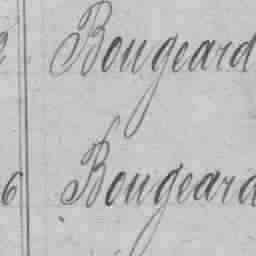 Bougeard
6 Bougeard